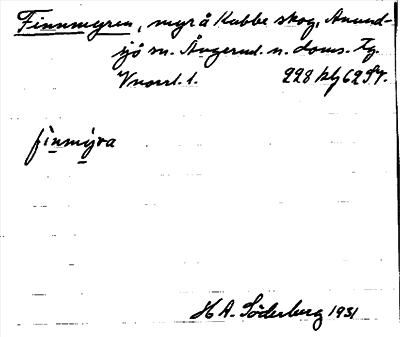 Finnmyren, myr å Kubbe skog, Anund-
sjö sn. Ångerml. n. doms. Tg.
Vnorrl. l. 228 klg 62 SV.
finmýra
H A. Söderberg 1931